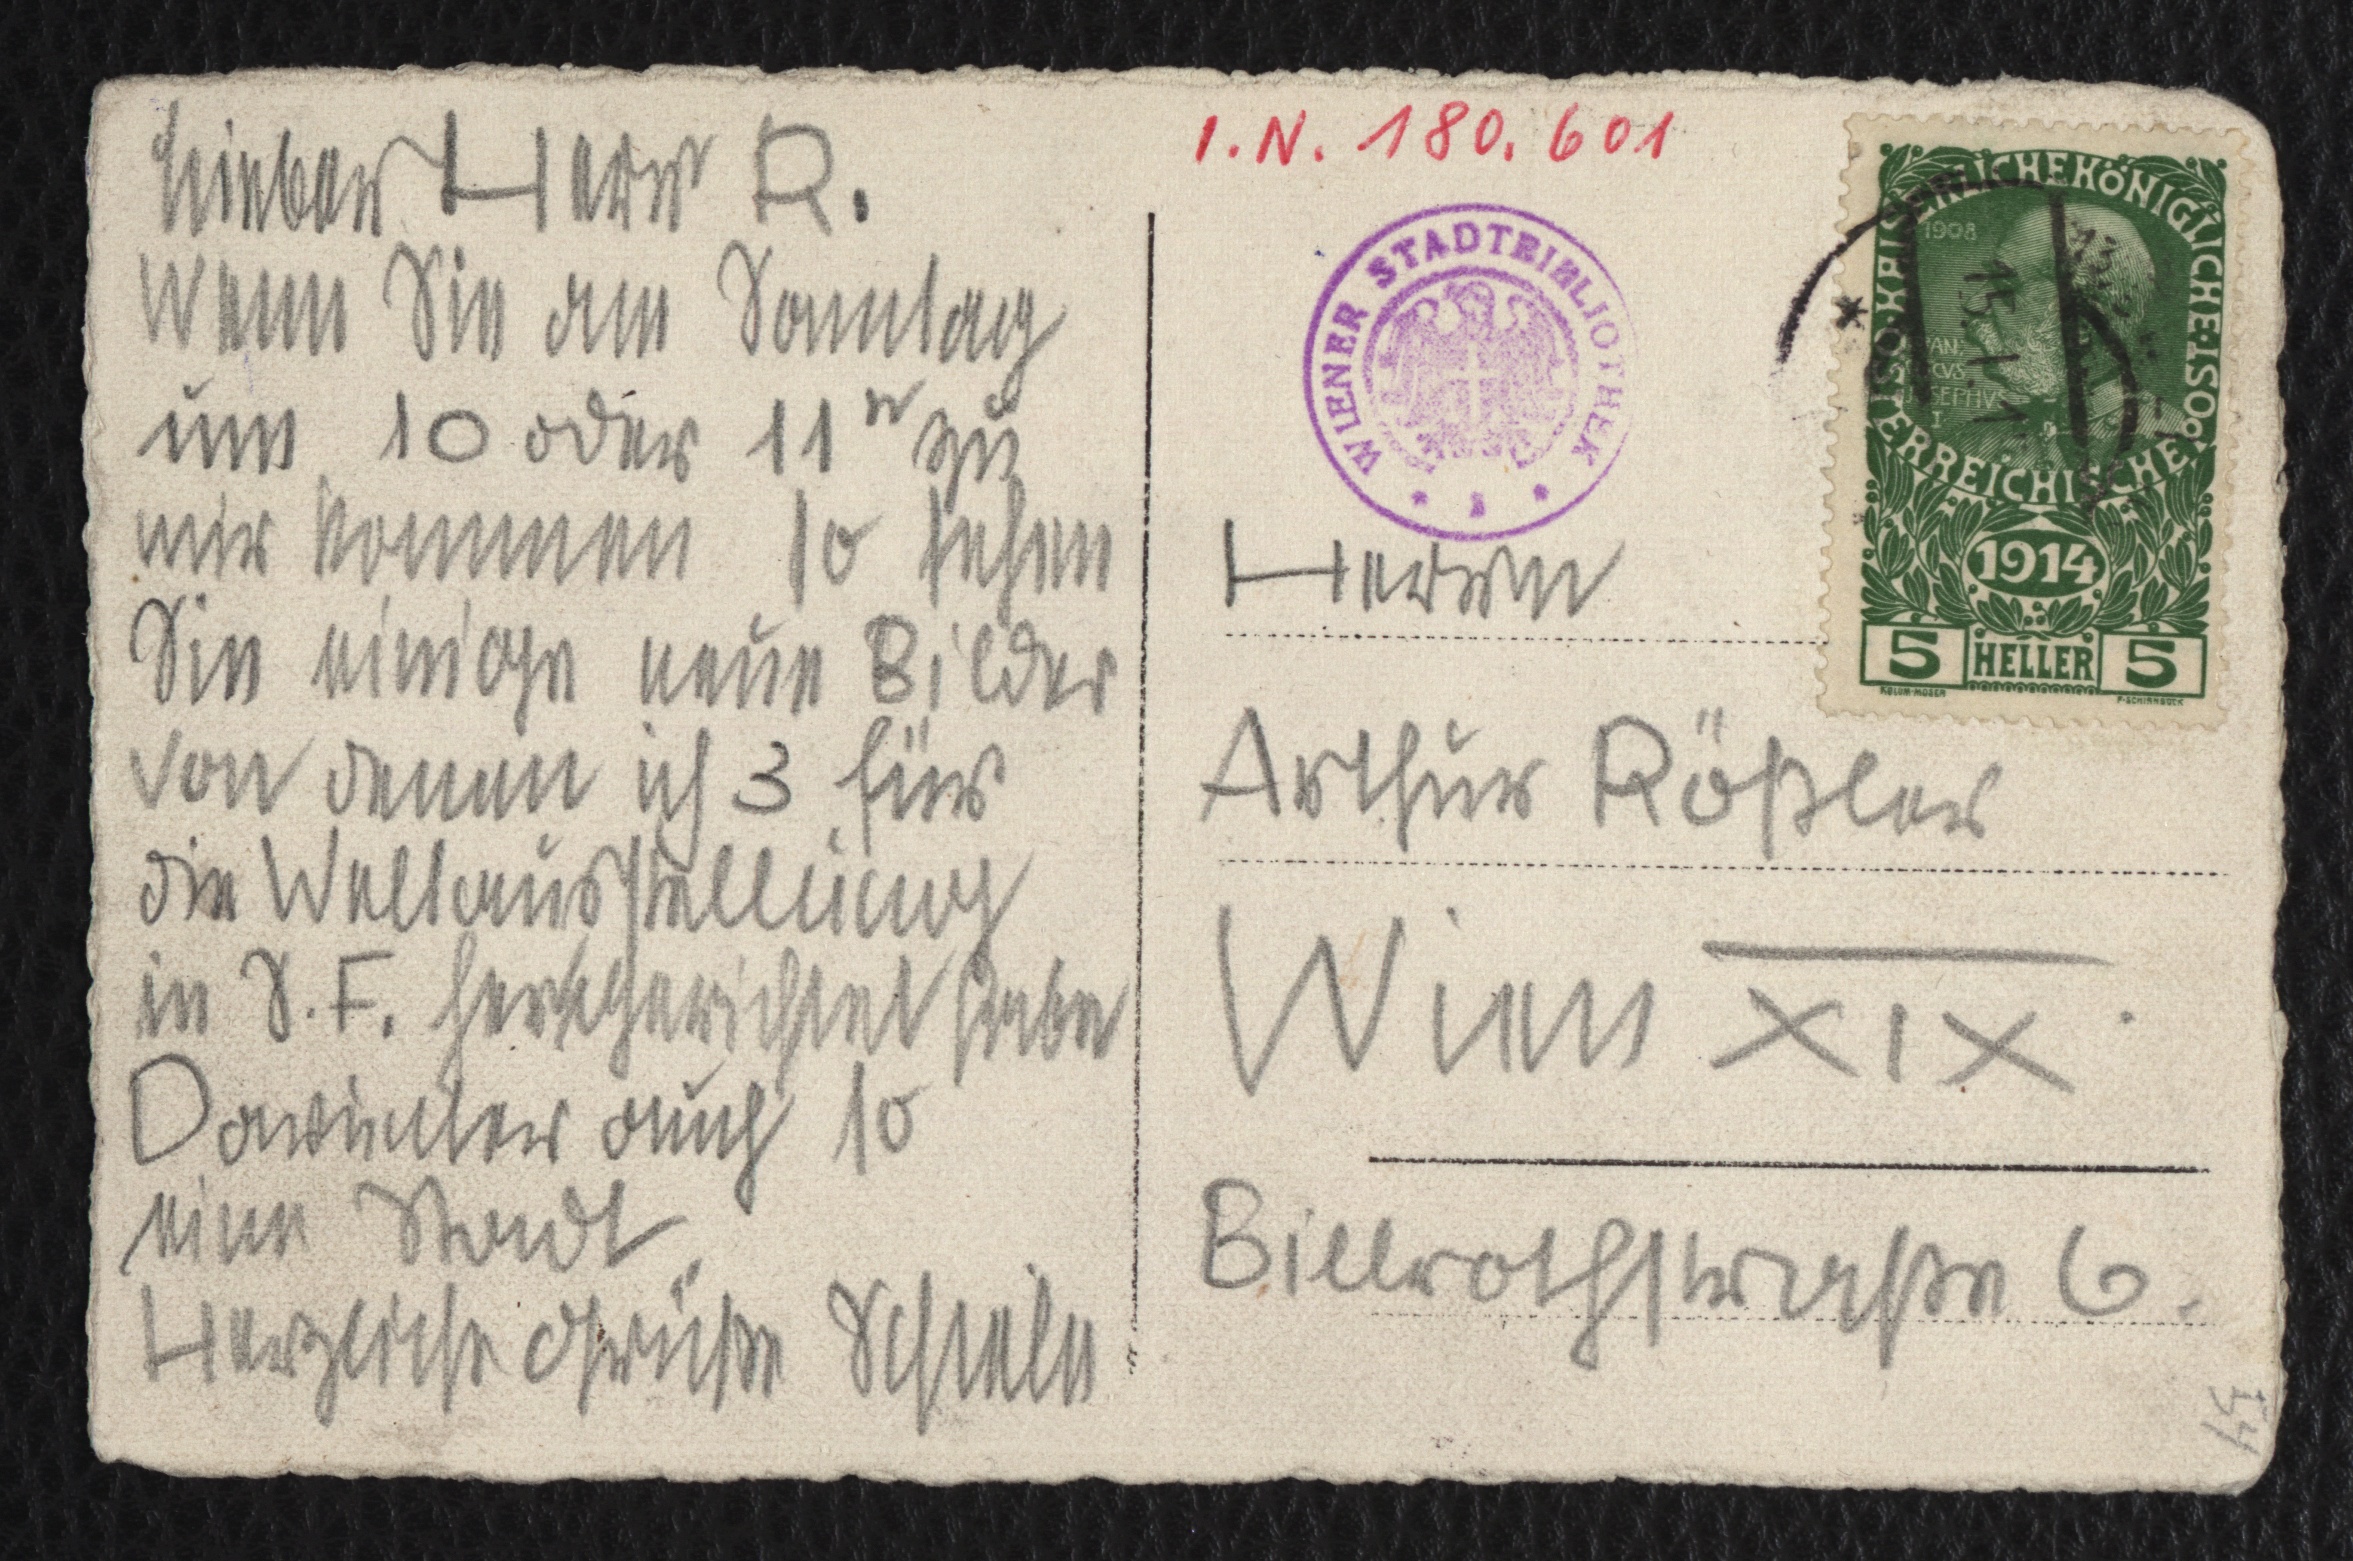 Lieber Herr R.
Wenn Sie am Sonntag
um 10 oder 11ʰ zu
mir kommen so sehen
Sie einige neue Bilder
von denen ich 3 für
die Weltausstellung
in S. F. hergerichtet habe
Darunter auch so
eine Stadt.
Herzliche Grüße Schiele
I.N. 180.601
WIENER STADTBIBLIOTHEK
KAISERLICHE KÖNIGLICHE ÖSTERREICHISCHE POST
1908
1914
5 HELLER 5
KOLOM·MOSER
F·SCHIRNBÖCK
Herrn
Arthur Rößler
Wien XIX.
Billrothstraße 6.